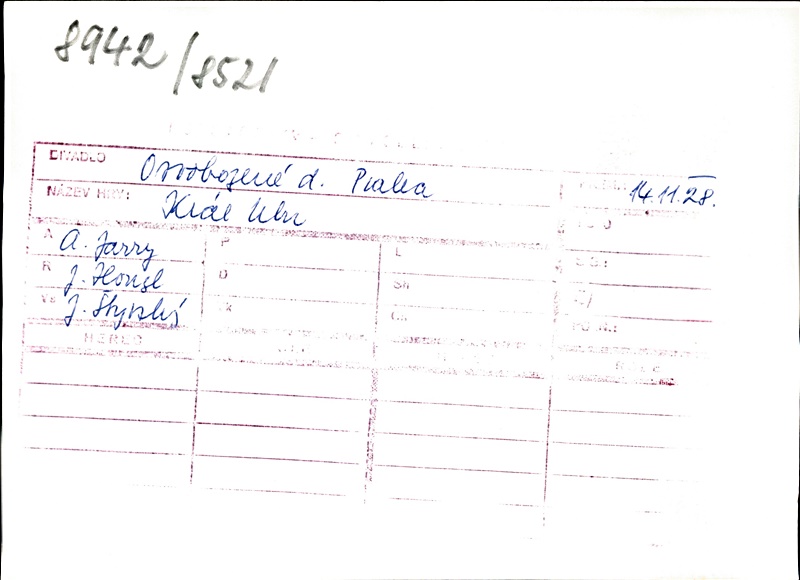 8942/8521
DIVADLO Osvobozené d. Praha 14.11.28.
NÁZEV HRY: Král Ubu
A A. Jarry P L
R J. Honzl D Sh
Vs J. Štyrský
HEREC